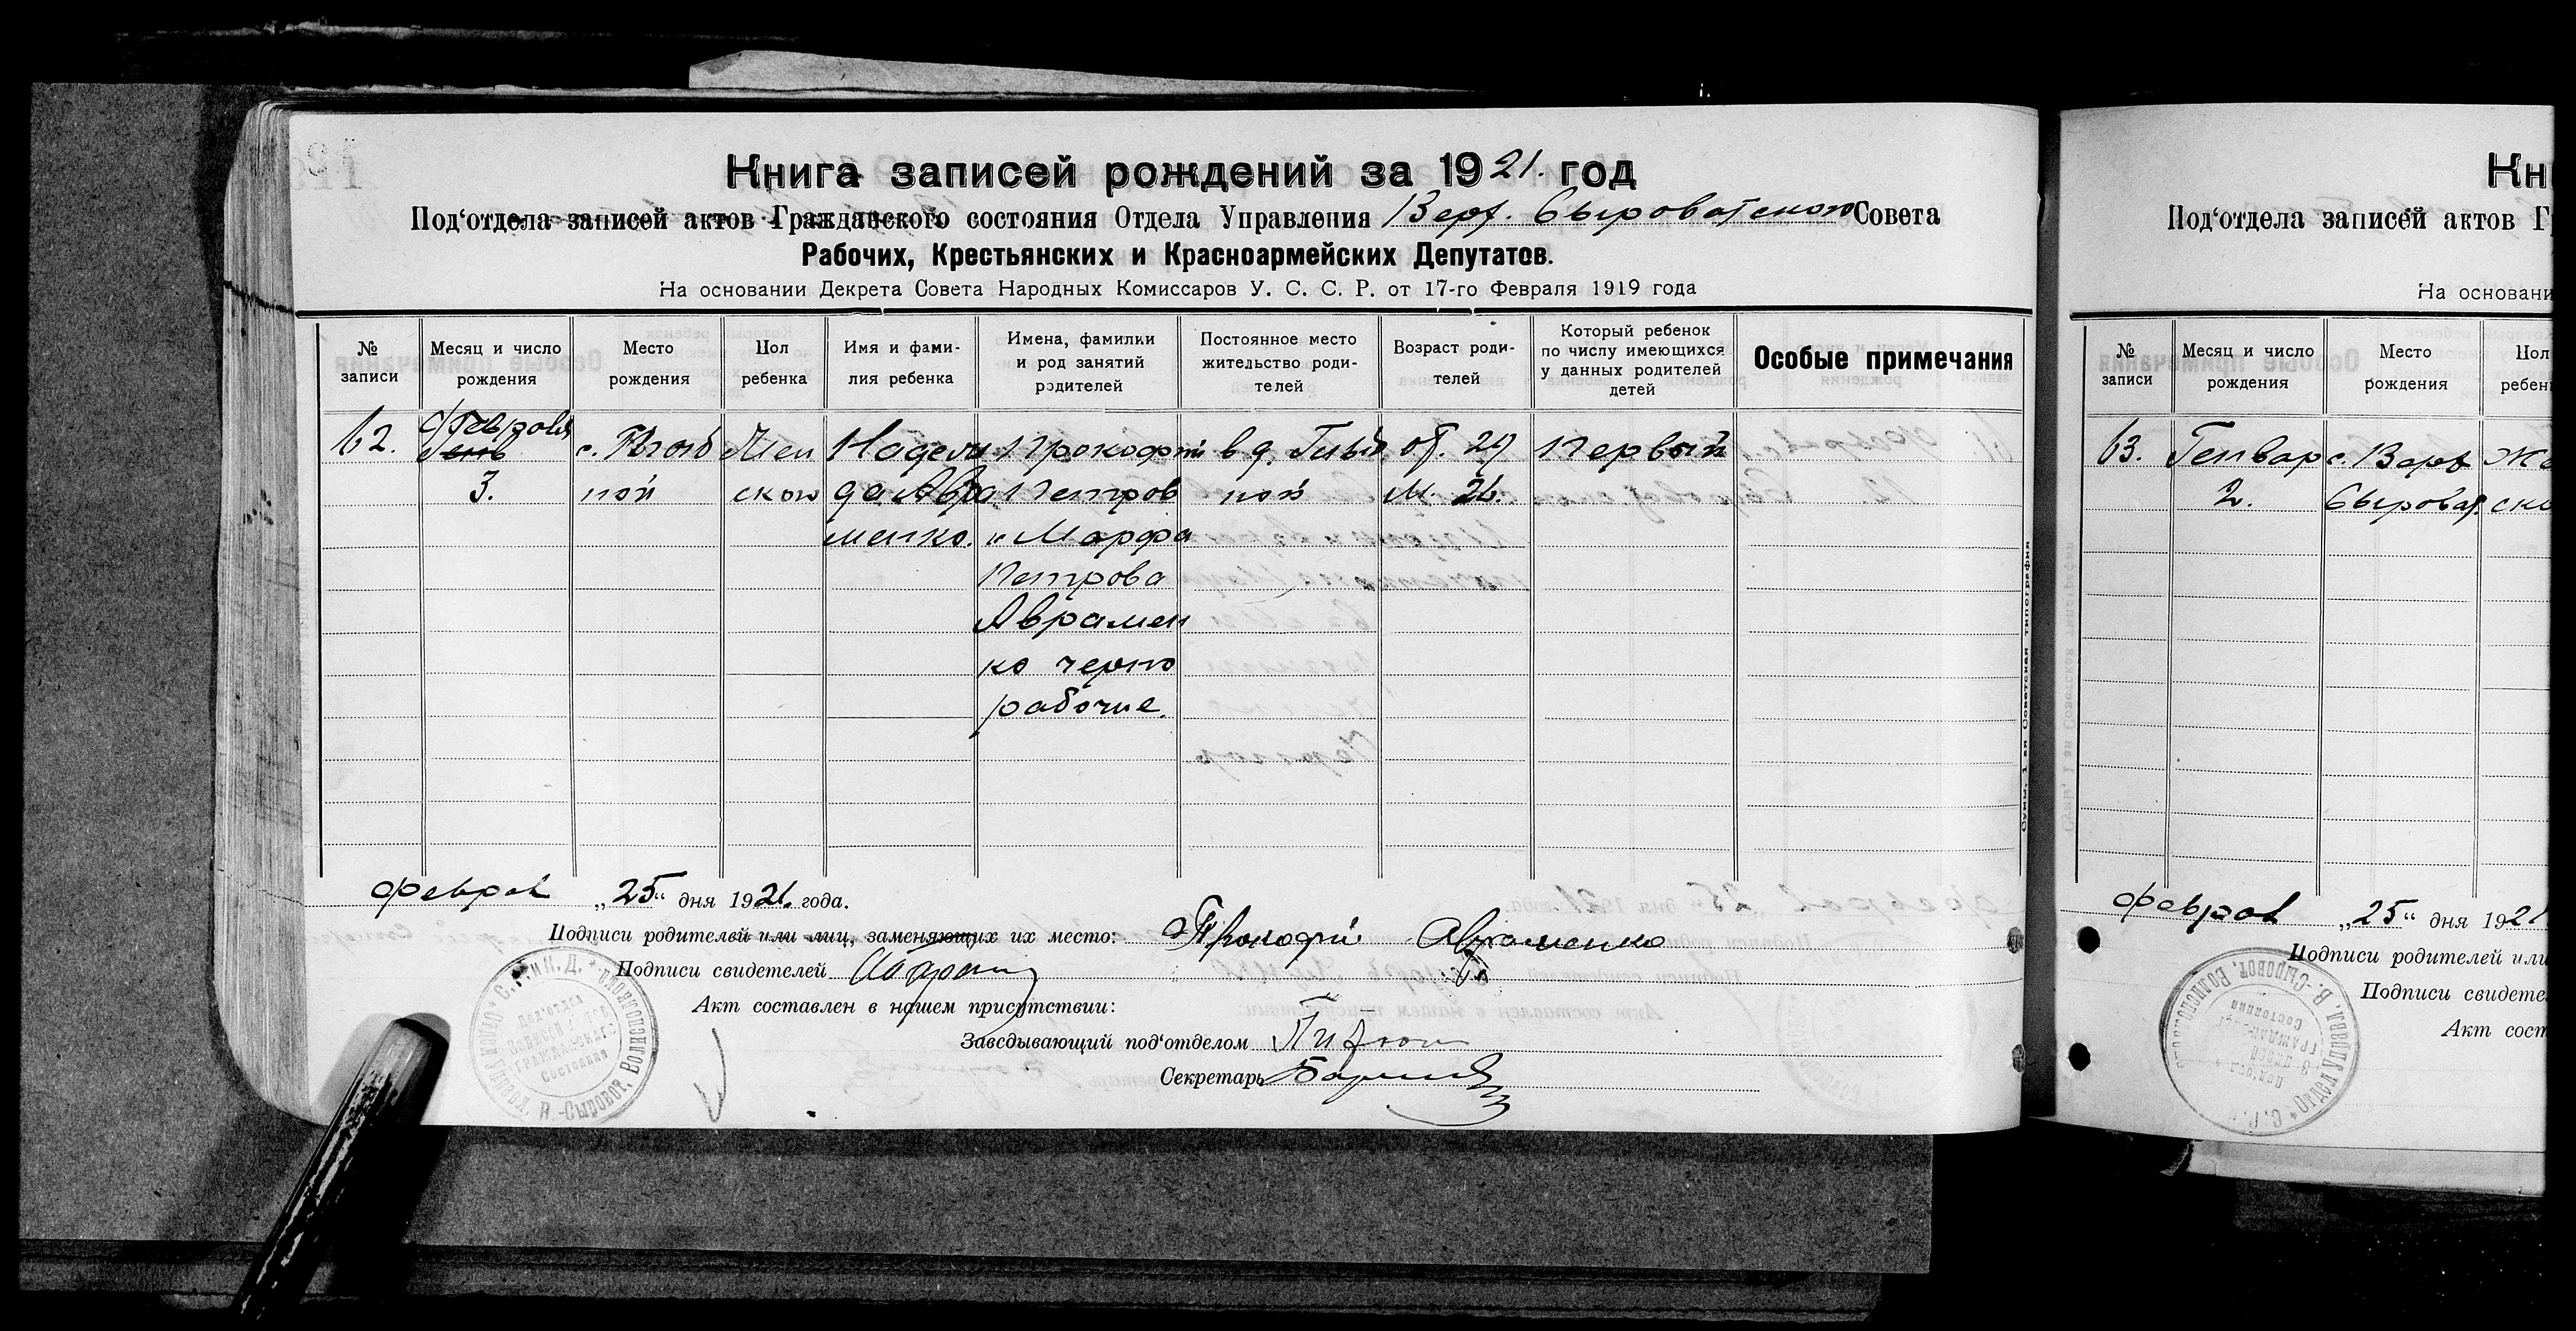 Книга записей рождений за 1921. год
Под‘отдела записей актов Гражданского состояния Отдела Управления Верх. Сыроватского Совета
Рабочих, Крестьянских и Красноармейских Депутатов.
На основании Декрета Совета Народных Комиссаров У. С. С. Р. от 17-го Февраля 1919 года
№ записи
Месяц и число рождения
Место рождения
Пол ребенка
Имя и фами-
лия ребенка
Имена, фамилии
и род занятий
родителей
Постоянное место
жительство роди-
телей
Возраст роди-
телей
Который ребенок
по числу имеющихся
у данных родителей
детей
Особые примечания
62.
Февраля
3.
с.
ной
Жен
ского
Надеж
да Авра
менко.
Прокофий
Петров
и Марфа
Петрова
Авramен
ко черно
рабочие.
в д.
ной
от. 29
М. 26.
Первый
Феврал „25“ дня 1921. года.
Подписи родителей или лиц, заменяющих их место: Прокофій Авраменко
Подписи свидетелей
Акт составлен в нашем присутствии:
Заведывающий под‘отделом
Секретарь
Сумы, 1-ая Советская типография
Кн
Под‘отдела записей актов Г
На основани
№ записи
Месяц и число рождения
Место рождения
Пол
ребен
63.
Генвар
2.
с. Верх
Сыроват.
Же
ско
Феврал „25“ дня 1921
Подписи родителей или
Подписи свидете
Акт сост